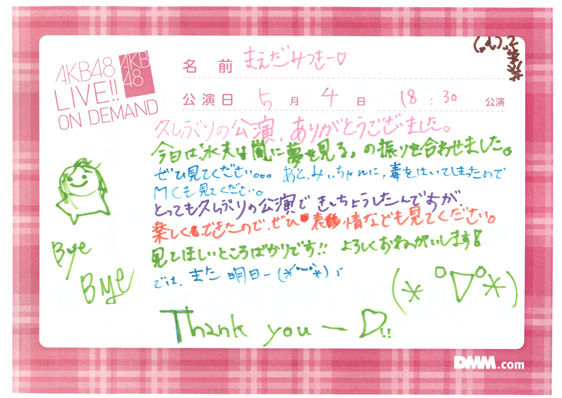 AKB48
LIVE!!
ON DEMAND
AKB
48
名 前 まえだみつきー♡
公演日 5 月 4 日 18 : 30 公演
久しぶりの公演、ありがとうございました。
今日は「水夫は嵐に夢を見る」の振りを合わせました。
ぜひ見てください。。。 あと、みぃちゃんに、毒をはいてしまったので
MCも見てください。
とっても久しぶりの公演できんちょうしたんですが
楽しくできたので、ぜひ 表情なども見てください。
見てほしいところばかりです!! よろしくおねがいします!
では、また 明日ー
Bye
Bye
(*°▽°*)
Thank you ー
DMM.com